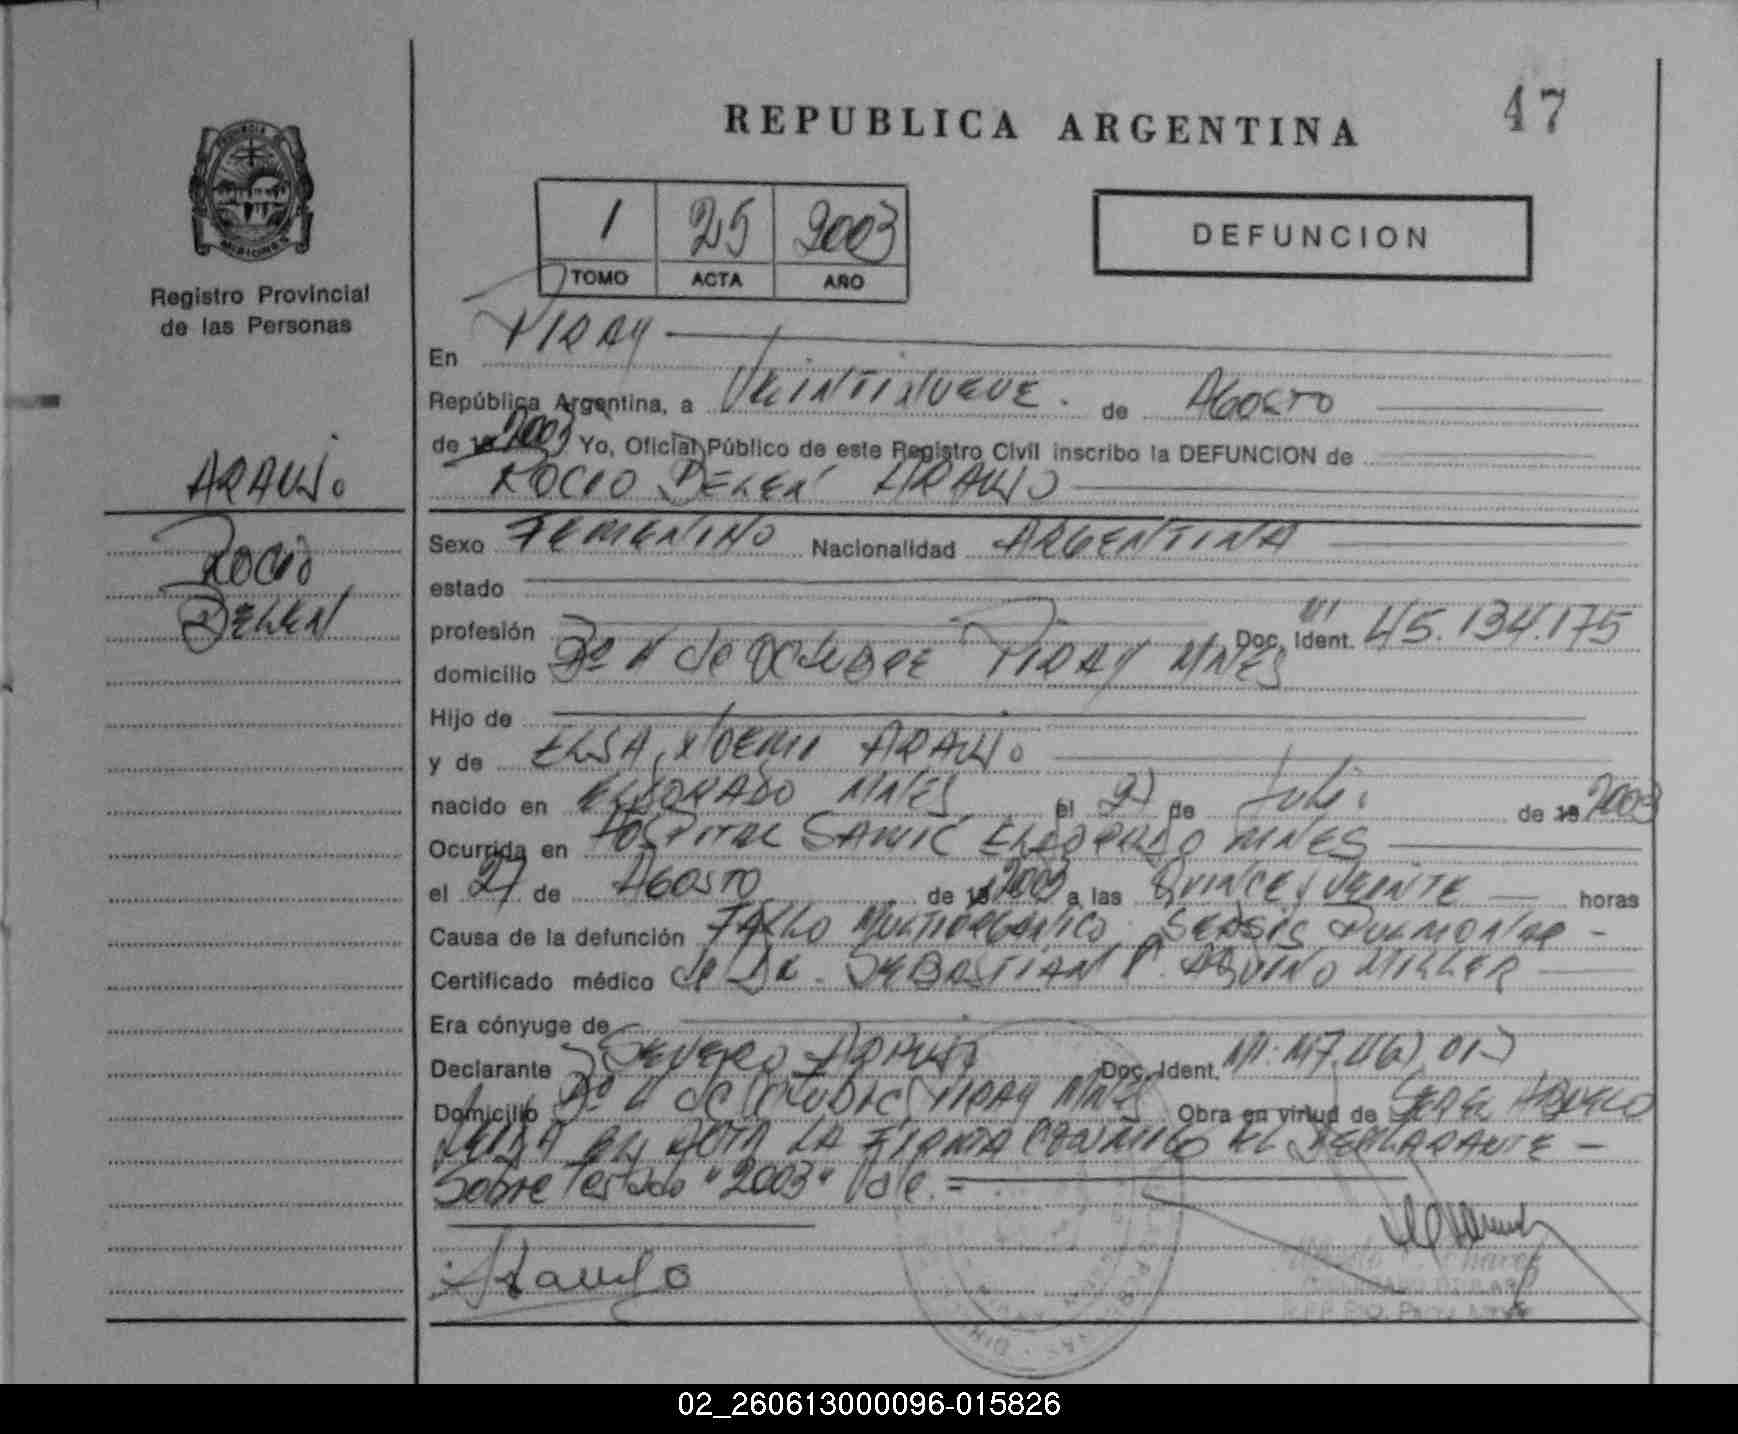 47
REPUBLICA ARGENTINA
DEFUNCION
1 25 2003
TOMO ACTA AÑO
Registro Provincial
de las Personas
ARAUJO
ROCIO
BELEN
En PIRAY
República Argentina, a VEINTINUEVE. de AGOSTO
de 19 2003 Yo, Oficial Público de este Registro Civil inscribo la DEFUNCION de
ROCIO BELEN ARAUJO
Sexo FEMENINO Nacionalidad ARGENTINA
estado
profesión Doc. Ident. 45.134.175
domicilio de Octubre PIRAY MNES
Hijo de
y de ELSA NOEMI ARAUJO
nacido en ELDORADO MNES el 27 de Julio de 19 2003
Ocurrida en HOSPITAL SAMIC ELDORADO MNES
el 27 de AGOSTO de 19 2003 a las QUINCE y VEINTE horas
Causa de la defunción FALLO MULTIORGANICO SEPSIS PULMONAR -
Certificado médico de DR. SEBASTIAN P. AQUINO MILLER
Era cónyuge de
Declarante SEVERO ARAUJO Doc. Ident. M7.
Domicilio de Octubre PIRAY MNES Obra en virtud de SER EL ABUELO
LEIDA EL ACTA LA FIRMA CONMIGO EL DECLARANTE -
Sobre Testado "2003" Vale. =
Araujo